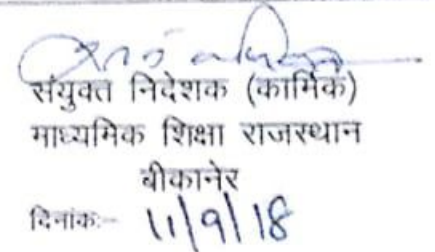 संयुक्त निदेशक (कार्मिक)
माध्यमिक शिक्षा राजस्थान
बीकानेर
दिनांक:- 11/9/18